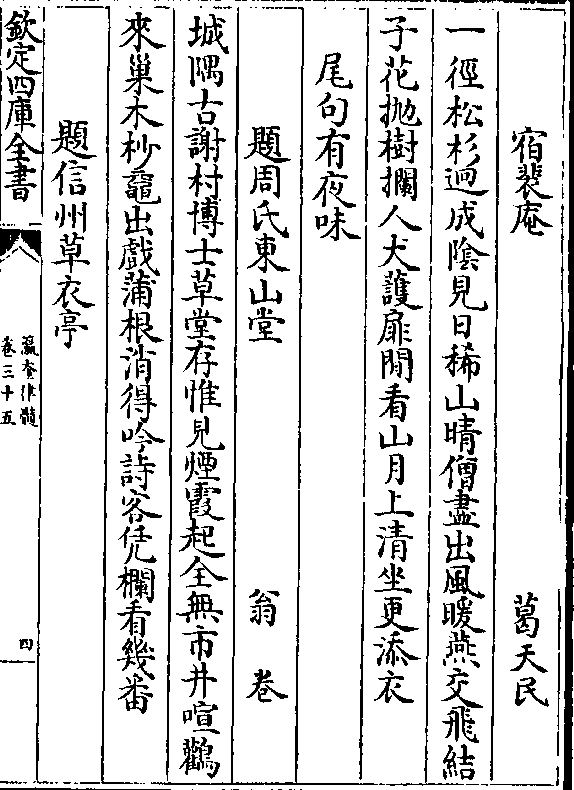 宿裴庵　葛天民
一徑松杉迥成陰見日稀山晴僧盡出風暖燕交飛結
子花抛樹攔人犬護扉閒看山月上清坐更添衣
尾句有夜味
題周氏東山堂　翁卷
城隅古謝村博士草堂存惟見煙霞起全無市井喧鸛
來巢木杪龜出戲蒲根消得吟詩客凭欄看幾番
題信州草衣亭
欽定四庫全書
瀛奎律髓
卷三十五
四